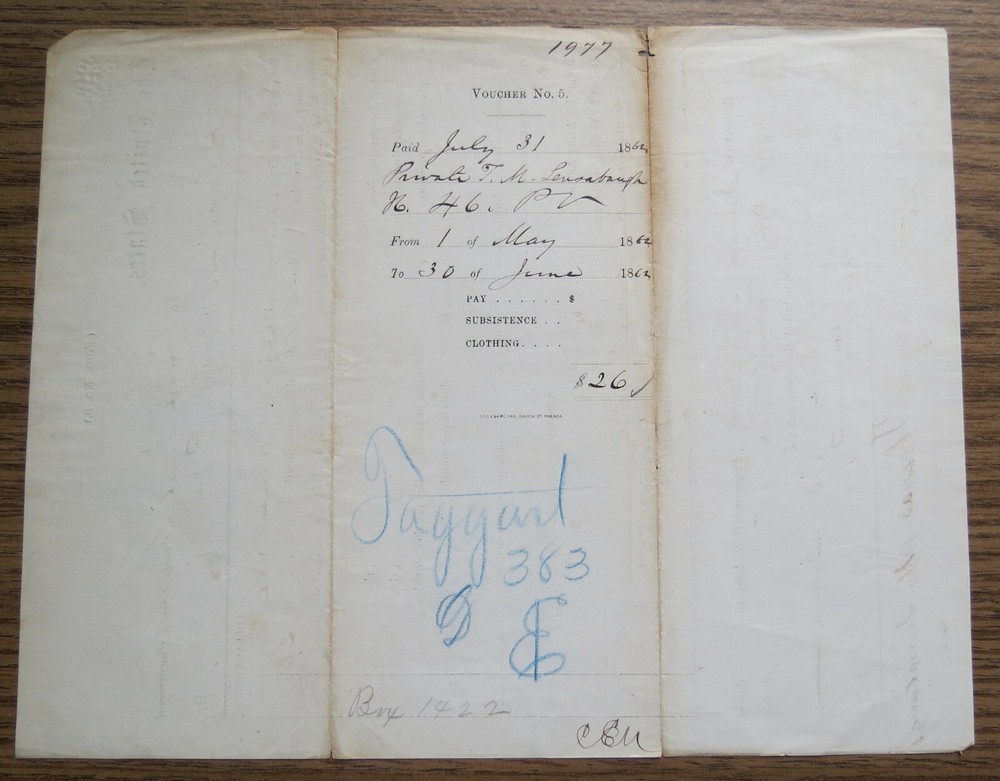 1977
VOUCHER NO. 5.
Paid July 31 1862
Private T. M. Sensabaugh
H. 46. PV
From 1 of May 1862
To 30 of June 1862
PAY . . . . . . $
SUBSISTENCE . .
CLOTHING. . . .
$26
Taggart
383
D
Box 1422